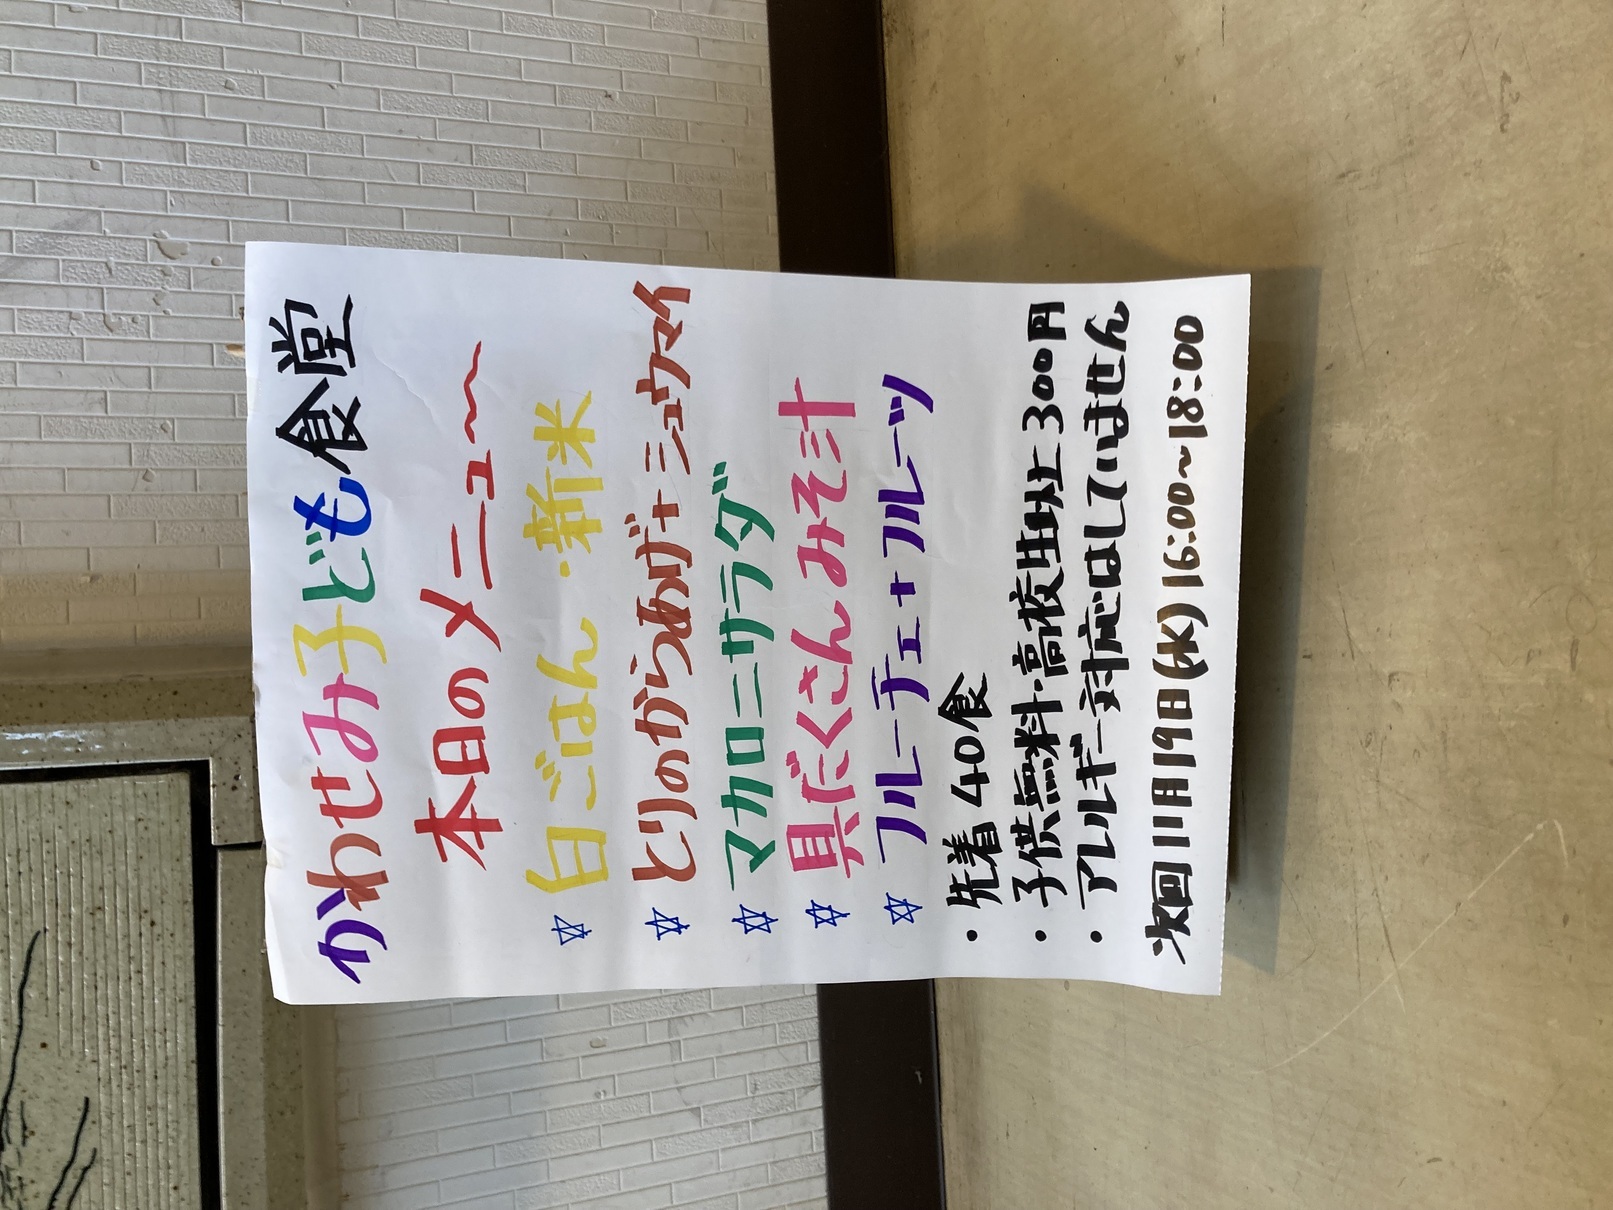 かわせみ子ども食堂
本日のメニュ〜
☆白ごはん・新米
☆とりのからあげ+シュウマイ
☆マカロニサラダ
☆具だくさんみそ汁
☆フルーチェ+フルーツ
・先着40食
・子供無料・高校生以上300円
・アレルギー対応はしていません
次回11月19日(水)16:00〜18:00